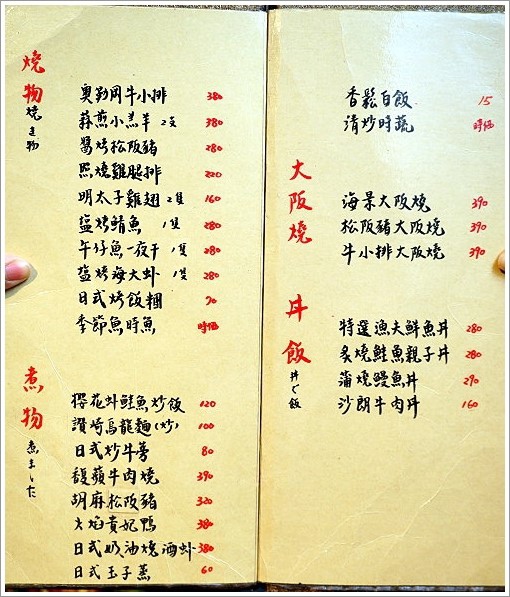 燒物
燒き物
奧勒岡牛小排 380
蒜煎小羔羊 2支 380
醬烤松阪豬 280
照燒雞腿排 220
明太子雞翅 2隻 160
鹽烤鯖魚 1隻 280
午仔魚一夜干 1隻 280
鹽烤海大虾 1隻 280
日式烤飯糰 70
季節魚時魚 時価
煮物
煮ました
櫻花虾鮭魚炒飯 120
讚崎烏龍麵(炒) 100
日式炒牛蒡 80
馥蘋牛肉燒 390
胡麻松阪豬 320
火焰貴妃鴨 380
日式奶油燒酒虾 380
日式玉子蒸 60
香鬆白飯 15
清炒時蔬 時価
大阪燒
海景大阪燒 390
松阪豬大阪燒 390
牛小排大阪燒 390
丼飯
丼ご飯
特選漁夫鮮魚丼 280
炙燒鮭魚親子丼 280
蒲燒鰻魚丼 290
沙朗牛肉丼 160